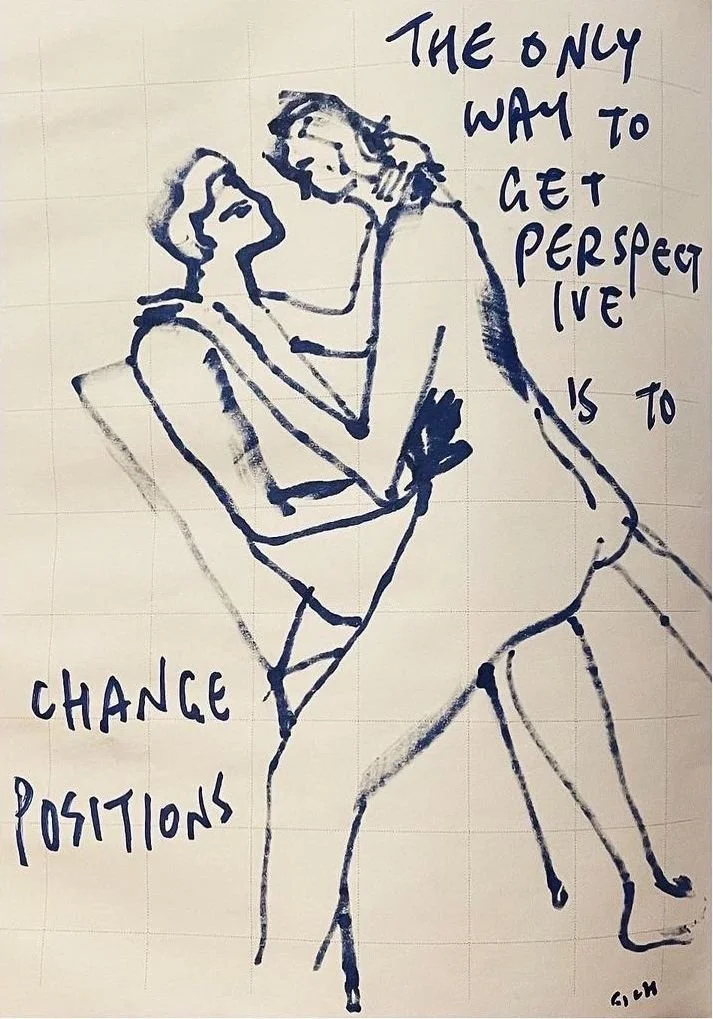 THE ONLY
WAY TO
GET
PERSPECT
IVE
IS TO
CHANGE
POSITIONS